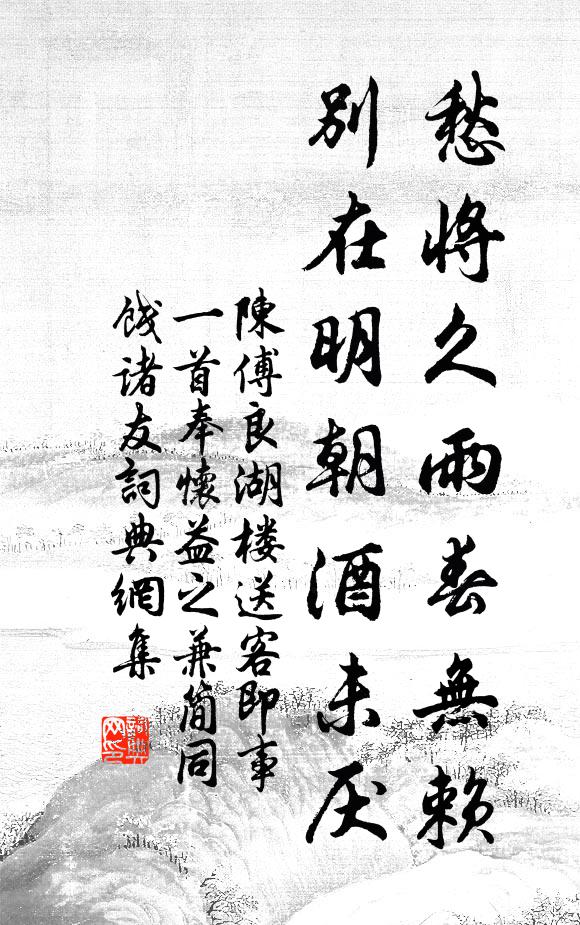 愁將久雨春無賴
別在明朝酒未厌
陳傅良湖楼送客即事
一首奉懷益之兼简同
餞诸友詞典網集
詞典網印